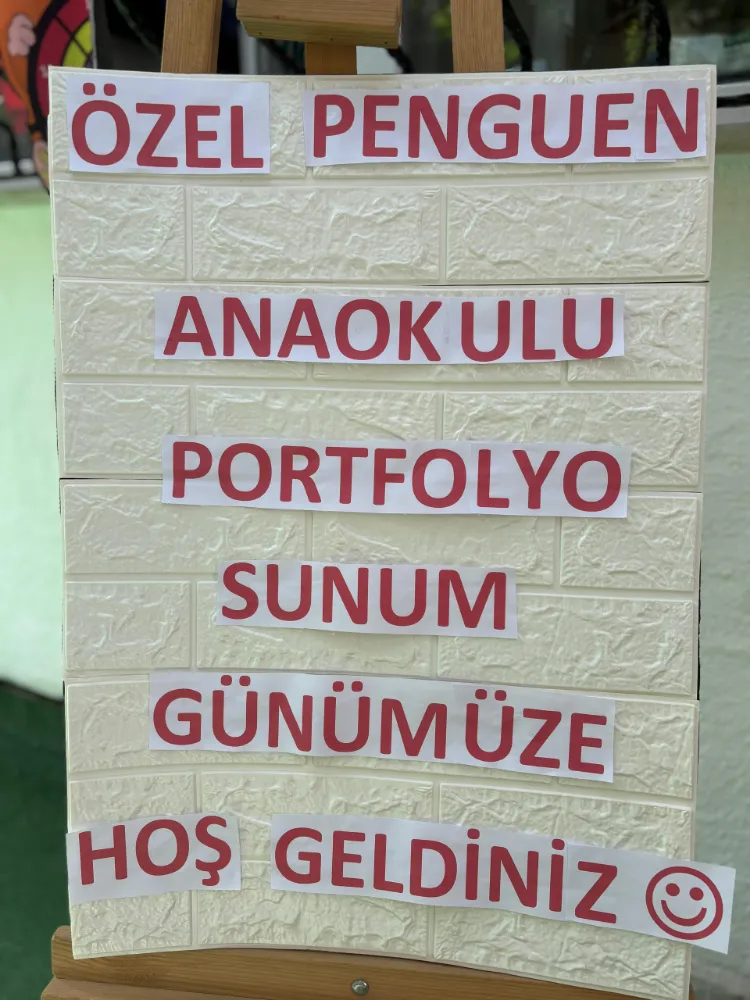 ÖZEL PENGUEN
ANAOKULU
PORTFOLYO
SUNUM
GÜNÜMÜZE
HOŞ GELDİNİZ ☺